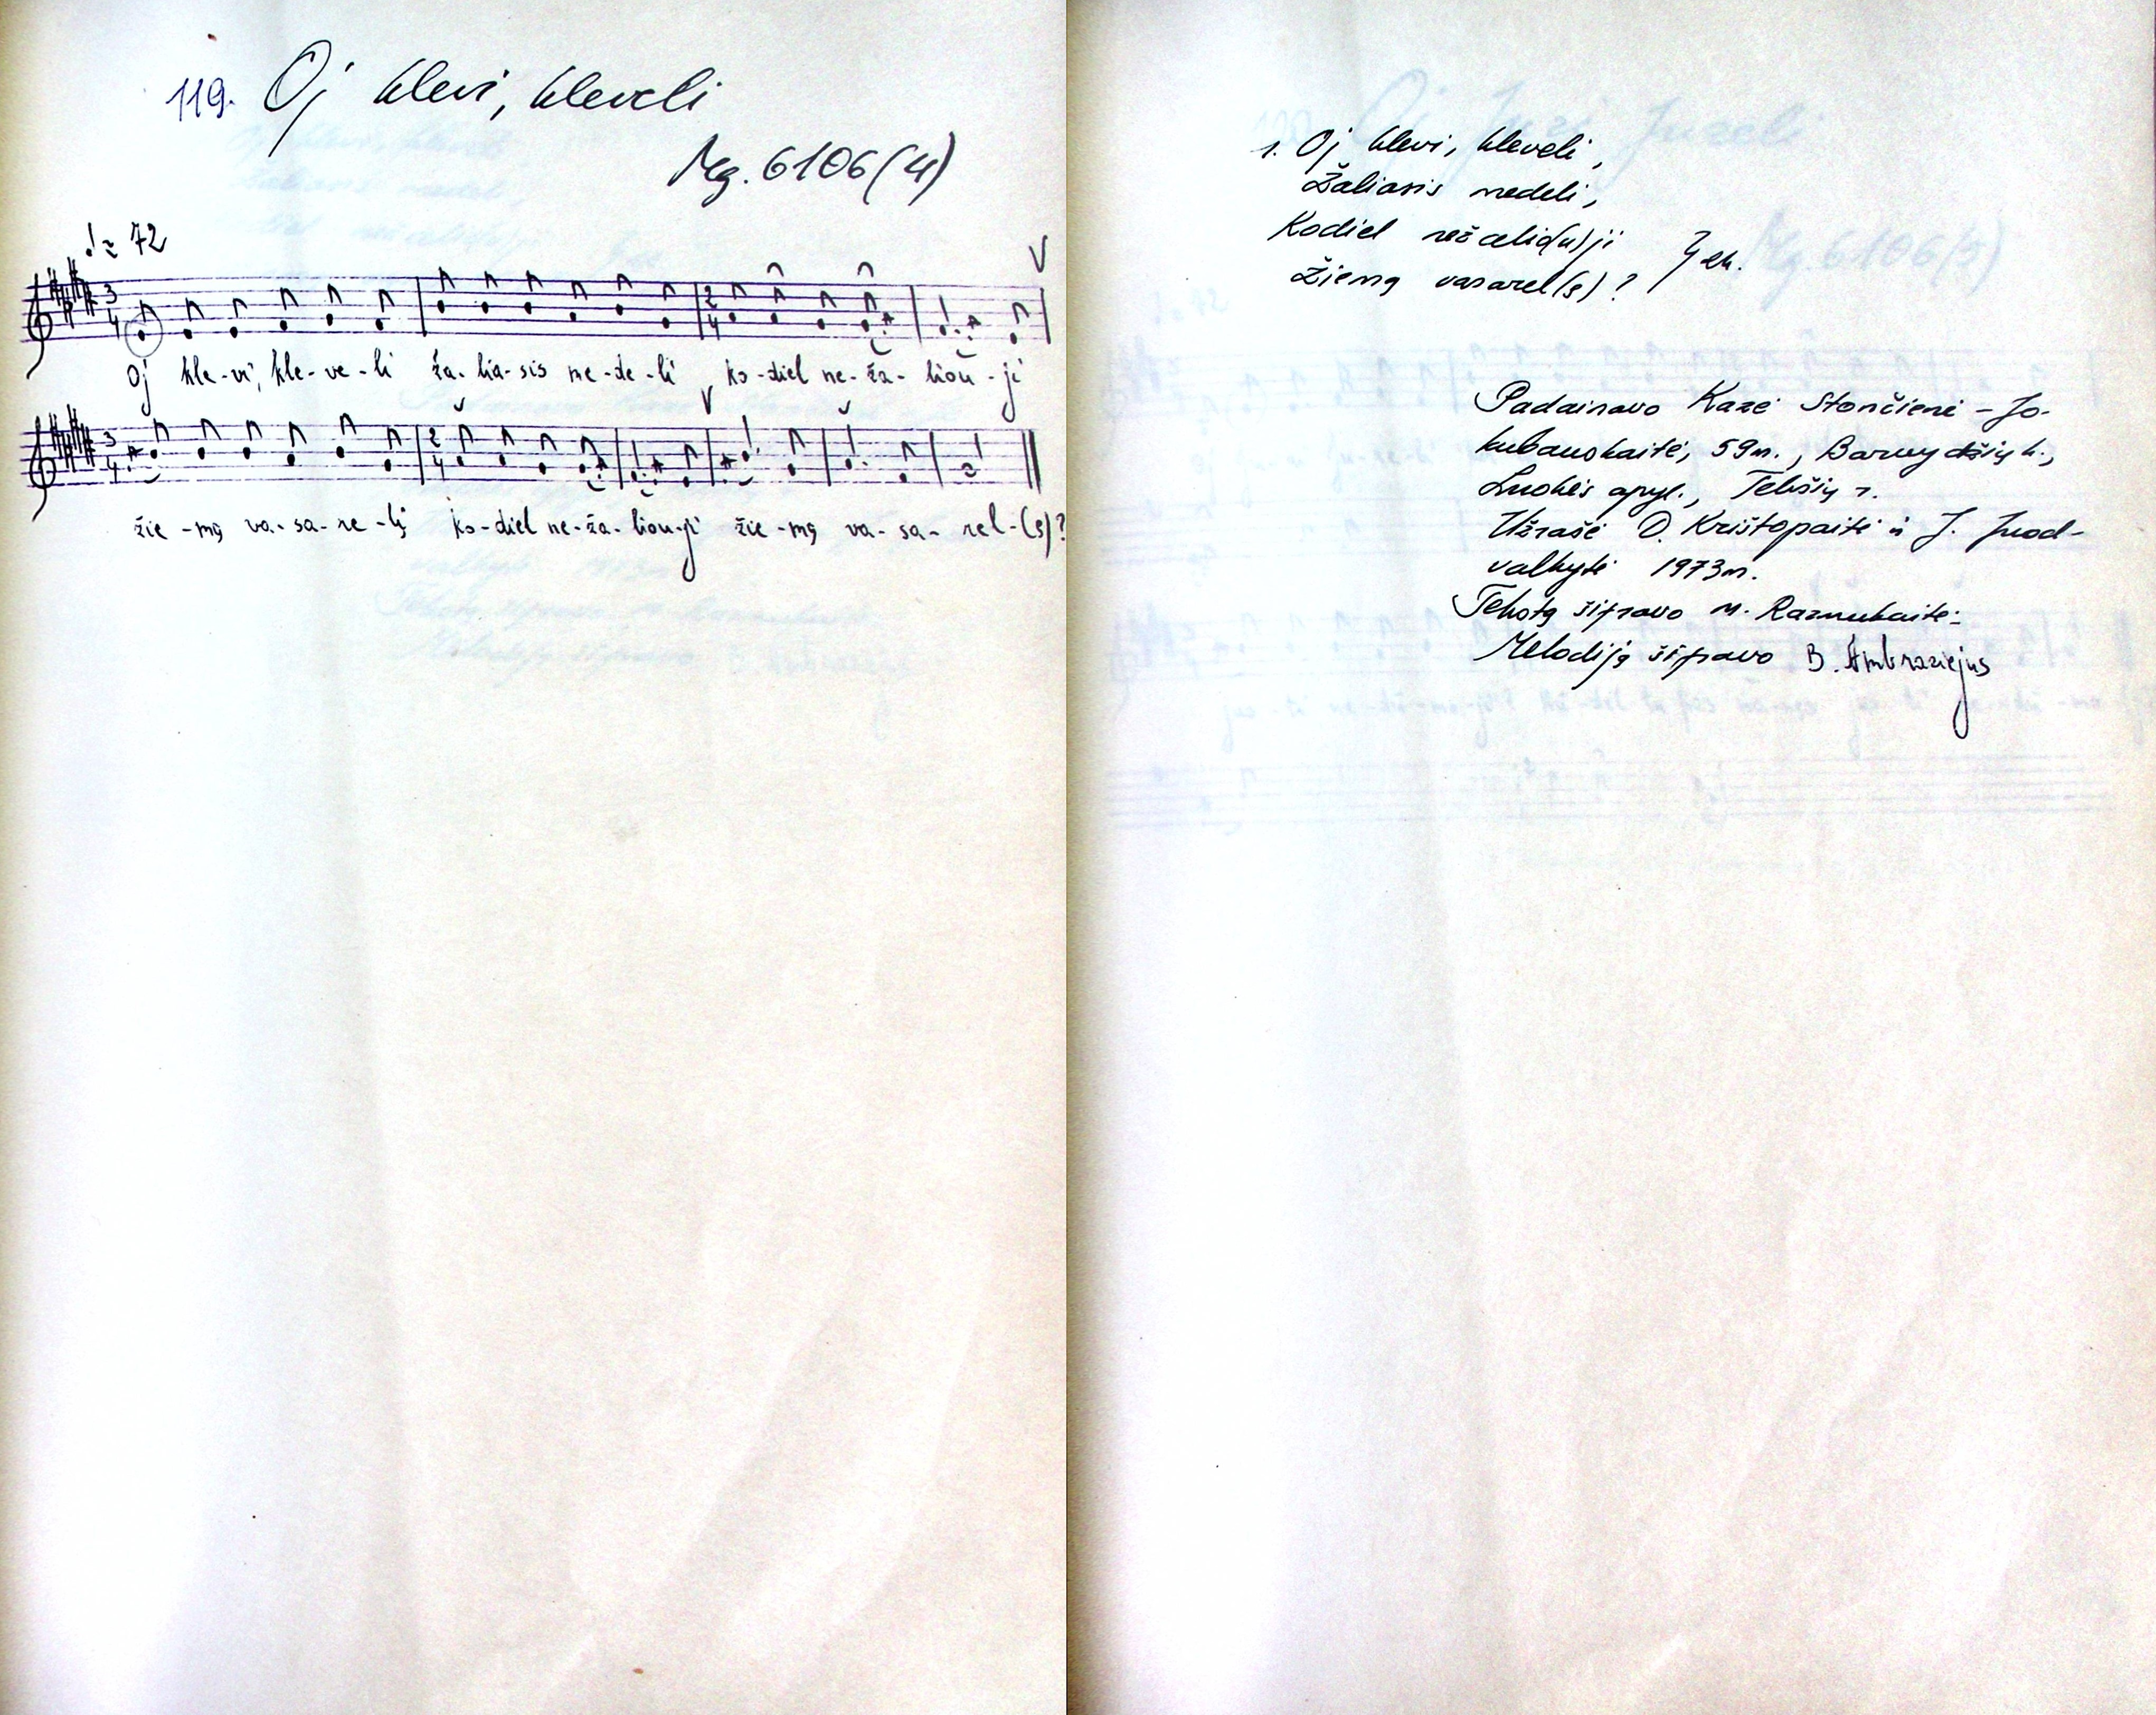 119. Oj klevi, kleveli
Mg. 6106(4)
♩= 72
Oj kle-vi, kle-ve-li ža-lia-sis me-de-li ko-diel ne-ža-liou-ji
žie-mą va-sa-re-lį ko-diel ne-ža-liou-ji žie-mą va-sa-rel-(į)?
1. Oj klevi, kleveli,
Žaliasis medeli,
Kodiel nežalio(u)ji } 2k.
Žiemą vasarel(į)?
Padainavo Kazė Stončienė - Jo-
kubauskaitė, 59 m., Barvydžių k.,
Luokės apyl., Telšių r.
Užrašė D. Krištopaitė ir J. Juod-
valkytė 1973 m.
Tekstą šifravo M. Razmukaitė
Melodiją šifravo B. Ambraziejus